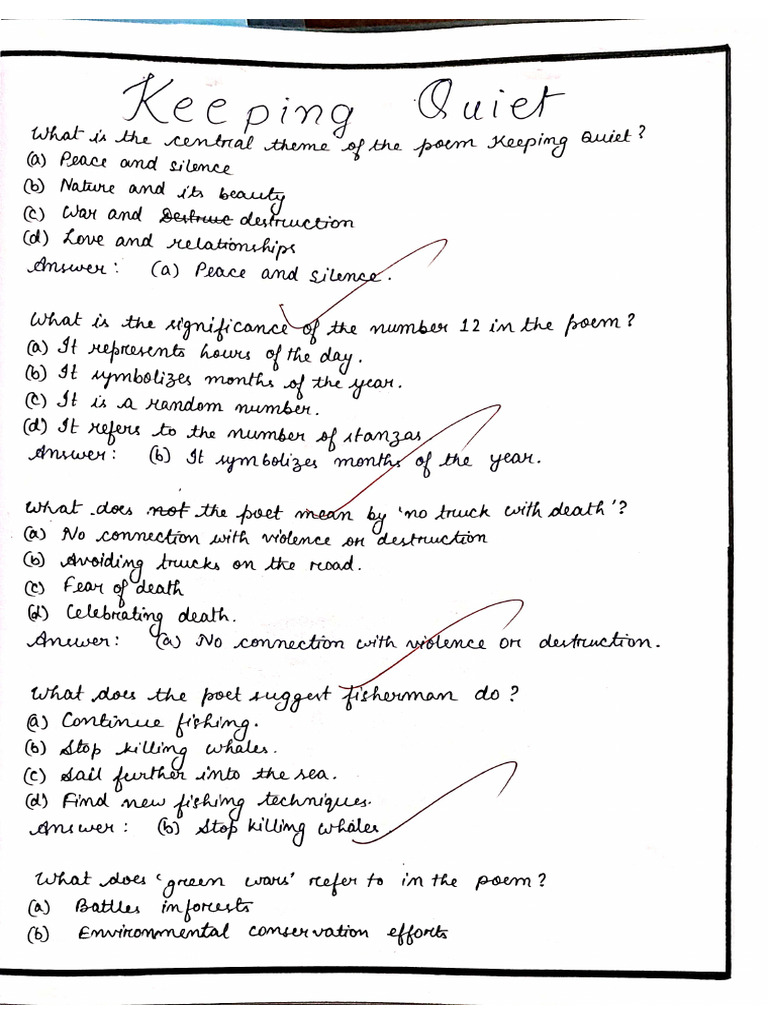 Keeping Quiet
What is the central theme of the poem Keeping Quiet?
(a) Peace and silence
(b) Nature and its beauty
(c) War and Destruc destruction
(d) Love and relationships
Answer: (a) Peace and silence.
What is the significance of the number 12 in the poem?
(a) It represents hours of the day.
(b) It symbolizes months of the year.
(c) It is a random number.
(d) It refers to the number of stanzas.
Answer: (b) It symbolizes months of the year.
What does not the poet mean by 'no truck with death'?
(a) No connection with violence or destruction
(b) Avoiding trucks on the road.
(c) Fear of death
(d) Celebrating death.
Answer: (a) No connection with violence or destruction.
What does the poet suggest fisherman do?
(a) Continue fishing.
(b) Stop killing whales.
(c) Sail further into the sea.
(d) Find new fishing techniques.
Answer: (b) Stop killing whales
What does 'green wars' refer to in the poem?
(a) Battles in forests
(b) Environmental conservation efforts